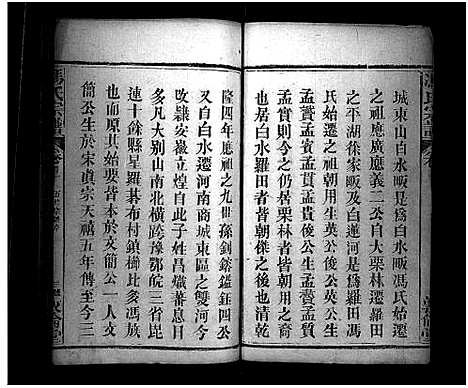 城東山白水畈是為白水畈馮氏始遷
之祖應廣應義二公自大栗林遷羅田
之平湖徐家畈及白蓮河是為羅田馮
氏始遷之祖朝用生英公俊公英公生
孟賢孟貫孟貴俊公生孟贇孟質
孟實則今之仍居栗林者皆朝用之裔
也居白水羅田者皆朝傑之後也清乾
隆四年應祖之九世孫釗鎔鎰鈺四公
又自白水遷河南商城東區之雙河今
改隸安徽立煌自此子姓昌熾蕃息日
多凡大别山南北橫跨豫鄂皖三省毘
連十餘縣星羅碁布村鎮櫛比多馮族
也而原其始要皆本於文簡公一人文
簡公生於宋真宗天禧五年傳至今三
馮氏宗譜